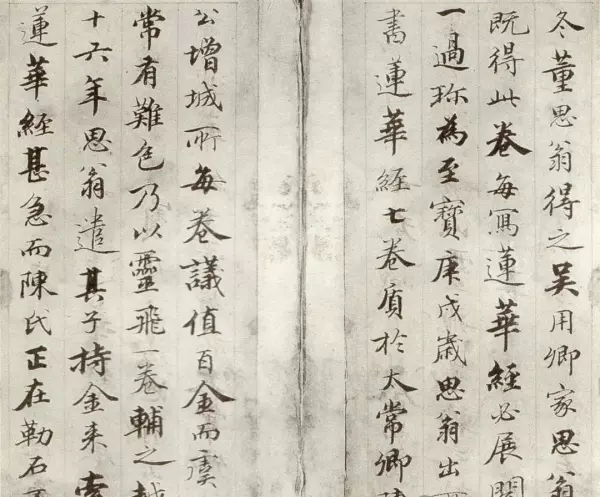 冬董思翁得之吴用卿家思翁
既得此卷每寫蓮華經必展閱
一過珎為至寶庚戌歲思翁出
書蓮華經七卷質於太常卿陳
公增城所每卷議值百金而虞
常有難色乃以靈飛一卷輔之越
十六年思翁遣其子持金来索
蓮華經甚急而陳氏正在勒石